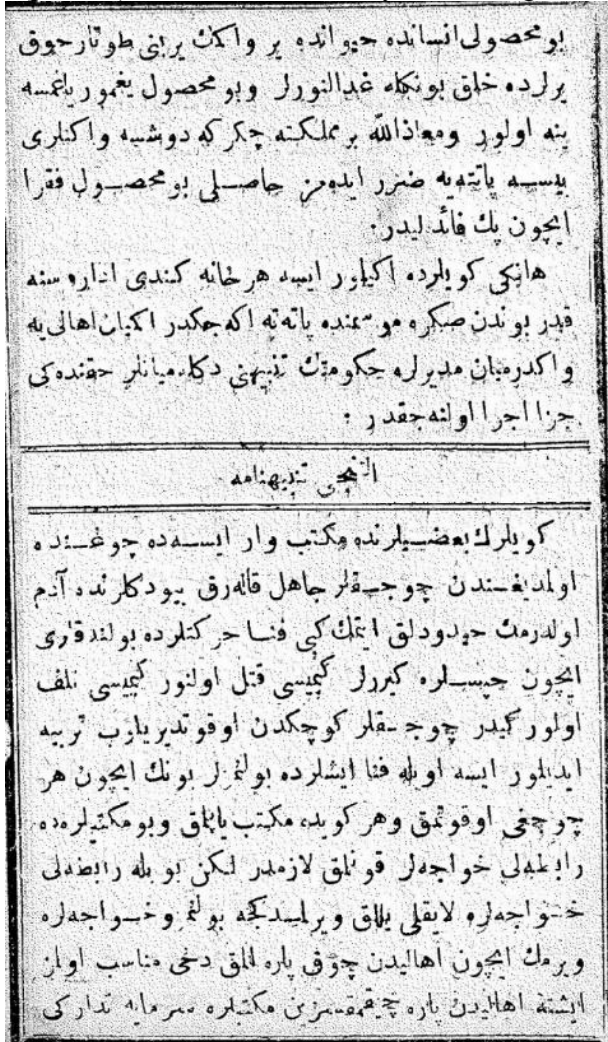 بو محصولی انسانده حیوانده یر واكمك یرینی طوتار چوق
یرلرده خلق بونكله غدالنورلر وبو محصول یغمور یاغمسه
ینه اولور ومعاذالله بر مملكته چكركه دوشسه واكنلری
ییسه پاتتهیه ضرر ایدهمز حاصلی بو محصول فقرا
ایچون پك فائدلیدر .
هانكی كویلرده اكیلور ایسه هر خانه كندی اداره سنه
قدر بوندن صكره موسمنده پاته ته اكه جكدر اكمیان اهالی یه
واكدرمیان مدیرلره حكومتك تنبیهنی دكله میانلر حقنده كی
جزا اجرا اولنه جقدر .
التنجی تنبیهنامه
كویلرك بعضیلرنده مكتب وار ایسه ده چوغنده
اولمدیغندن چوجقلر جاهل قاله رق بیودكلرنده آدم
اولدرمك حیدودلق ایتمك كبی فنا حركتلرده بولندقلری
ایچون حپسلره كیررلر كیمیسی قتل اولنور كیمیسی تلف
اولور كیدر چوجقلر كوچكدن اوقوتدیریلوب تربیه
ایدیلور ایسه اویله فنا ایشلرده بولنمزلر بونك ایچون هر
چوجغی اوقوتمق وهر كویده مكتب یاپمق وبو مكتبلرده
رابطه لی خواجه لر قونلمق لازمدر لكن بویله رابطه لی
خواجه لره لایقلی یللق ویرلمدكجه بولنمز وخواجه لره
ویرمك ایچون اهالیدن چوق پاره المق دخی مناسب اولمز
ایشته اهالیدن پاره چیقمقسزین مكتبلره سرمایه تداركی